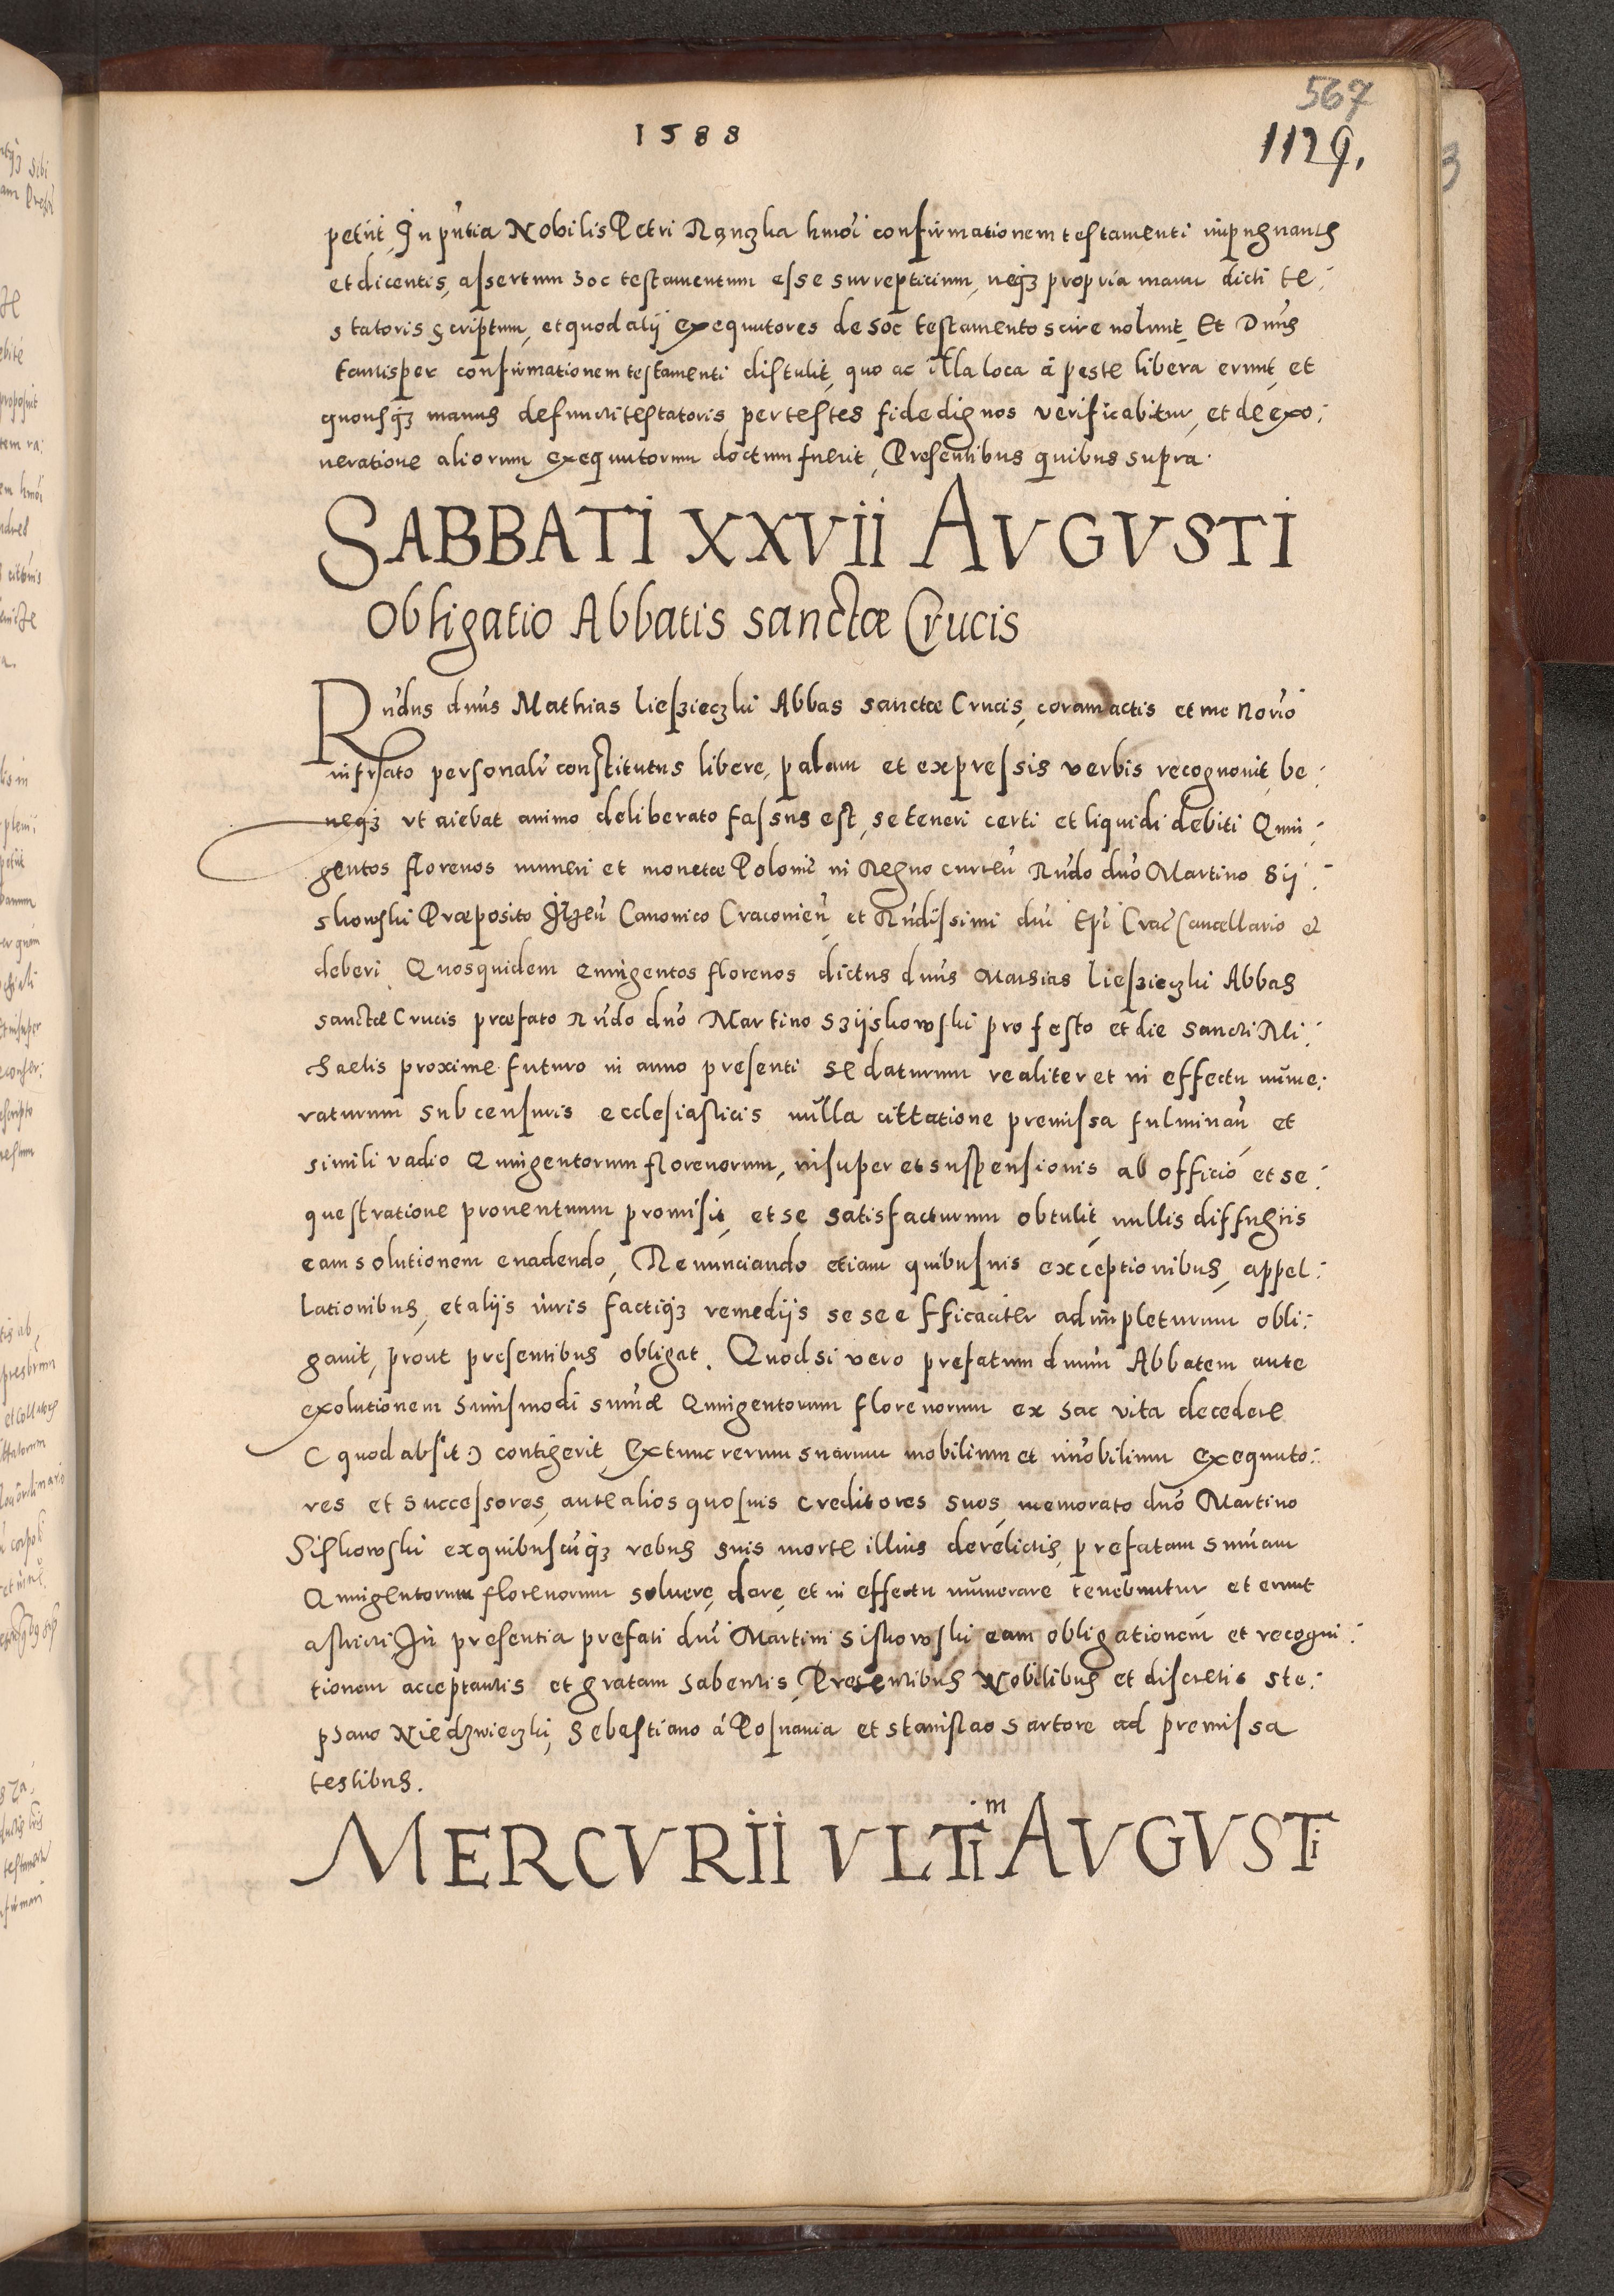 567
1588
1129.
petiit, In pntia Nobilis Petri Rzuzka hmoi confirmationem testamenti impugnantis
et dicentis, assertum hoc testamentum esse surrepticium, neqz propria manu dicti te:
statoris scriptum, et quod alij exequutores de hoc testamento scire nolunt, Et Dnus
tantisper confirmationem testamenti distulit, quo ac illa loca á peste libera erunt, et
quousqz manus defuncti testatoris, per testes fide dignos verificabitur, et de exo:
neratione aliorum exequutorum doctum fuerit, Presentibus quibus supra.
SABBATI XXVII AVGVSTI
Obligatio Abbatis sanctæ Crucis
Rndus dnus Mathias Lieszieczki Abbas sanctæ Crucis, coram actis et me Norio
infrsato personalr constitutus libere, palam et expressis verbis recognouit, be:
neqz vt aiebat animo deliberato fassus est, se teneri certi et liquidi debiti Quin:
gentos florenos numeri et monetæ Polonic in Regno curren Rndo dno Martino Sij:
skowski Præposito Ilzen Canonico Cracouien, et Rndissimi dni Epi Crac Cancellario et
deberi. Quosquidem Quingentos florenos dictus dnus Mathias Lieszieczki Abbas
sanctæ Crucis præfato Rndo dno Martino Szijskowski pro festo et die Sancti Mi:
chaelis proxime futuro in anno presenti se daturum realiter et in effectu nume:
raturum sub censuris ecclesiasticis nulla cittatione premissa fulminan et
simili vadio Quingentorum florenorum, insuper et suspensionis ab officio, et se:
questratione prouentuum promisit, et se satisfacturum obtulit, nullis diffugiis
eam solutionem euadendo, Renunciando etiam quibusuis exceptionibus, appel:
lationibus, et alijs iuris factiqz remedijs sese efficaciter adimpleturum obli:
gauit, prout presentibus obligat. Quod si vero prefatum dnum Abbatem ante
exolutionem huiusmodi summæ Quingentorum florenorum ex hac vita decedere
( quod absit ) contigerit, Extunc rerum suarum mobilium et imobilium exequuto:
res et successores, ante alios quosuis creditores suos, memorato dno Martino
Siskowski ex quibuscunqz rebus suis morte illius derelictis, prefatam sumam
Quingentorum florenorum soluere, dare, et in effectu numerare tenebuntur et erunt
astricti, In presentia prefati dni Martini Siskowski eam obligationem et recogni:
tionem acceptantis et gratam habentis, Presentibus Nobilibus et discretis Ste:
phano Niedzwieczki, Sebestiano á Posnania et Stanislao sartore ad premissa
testibus.
MERCVRII VLTIm AVGVSTi